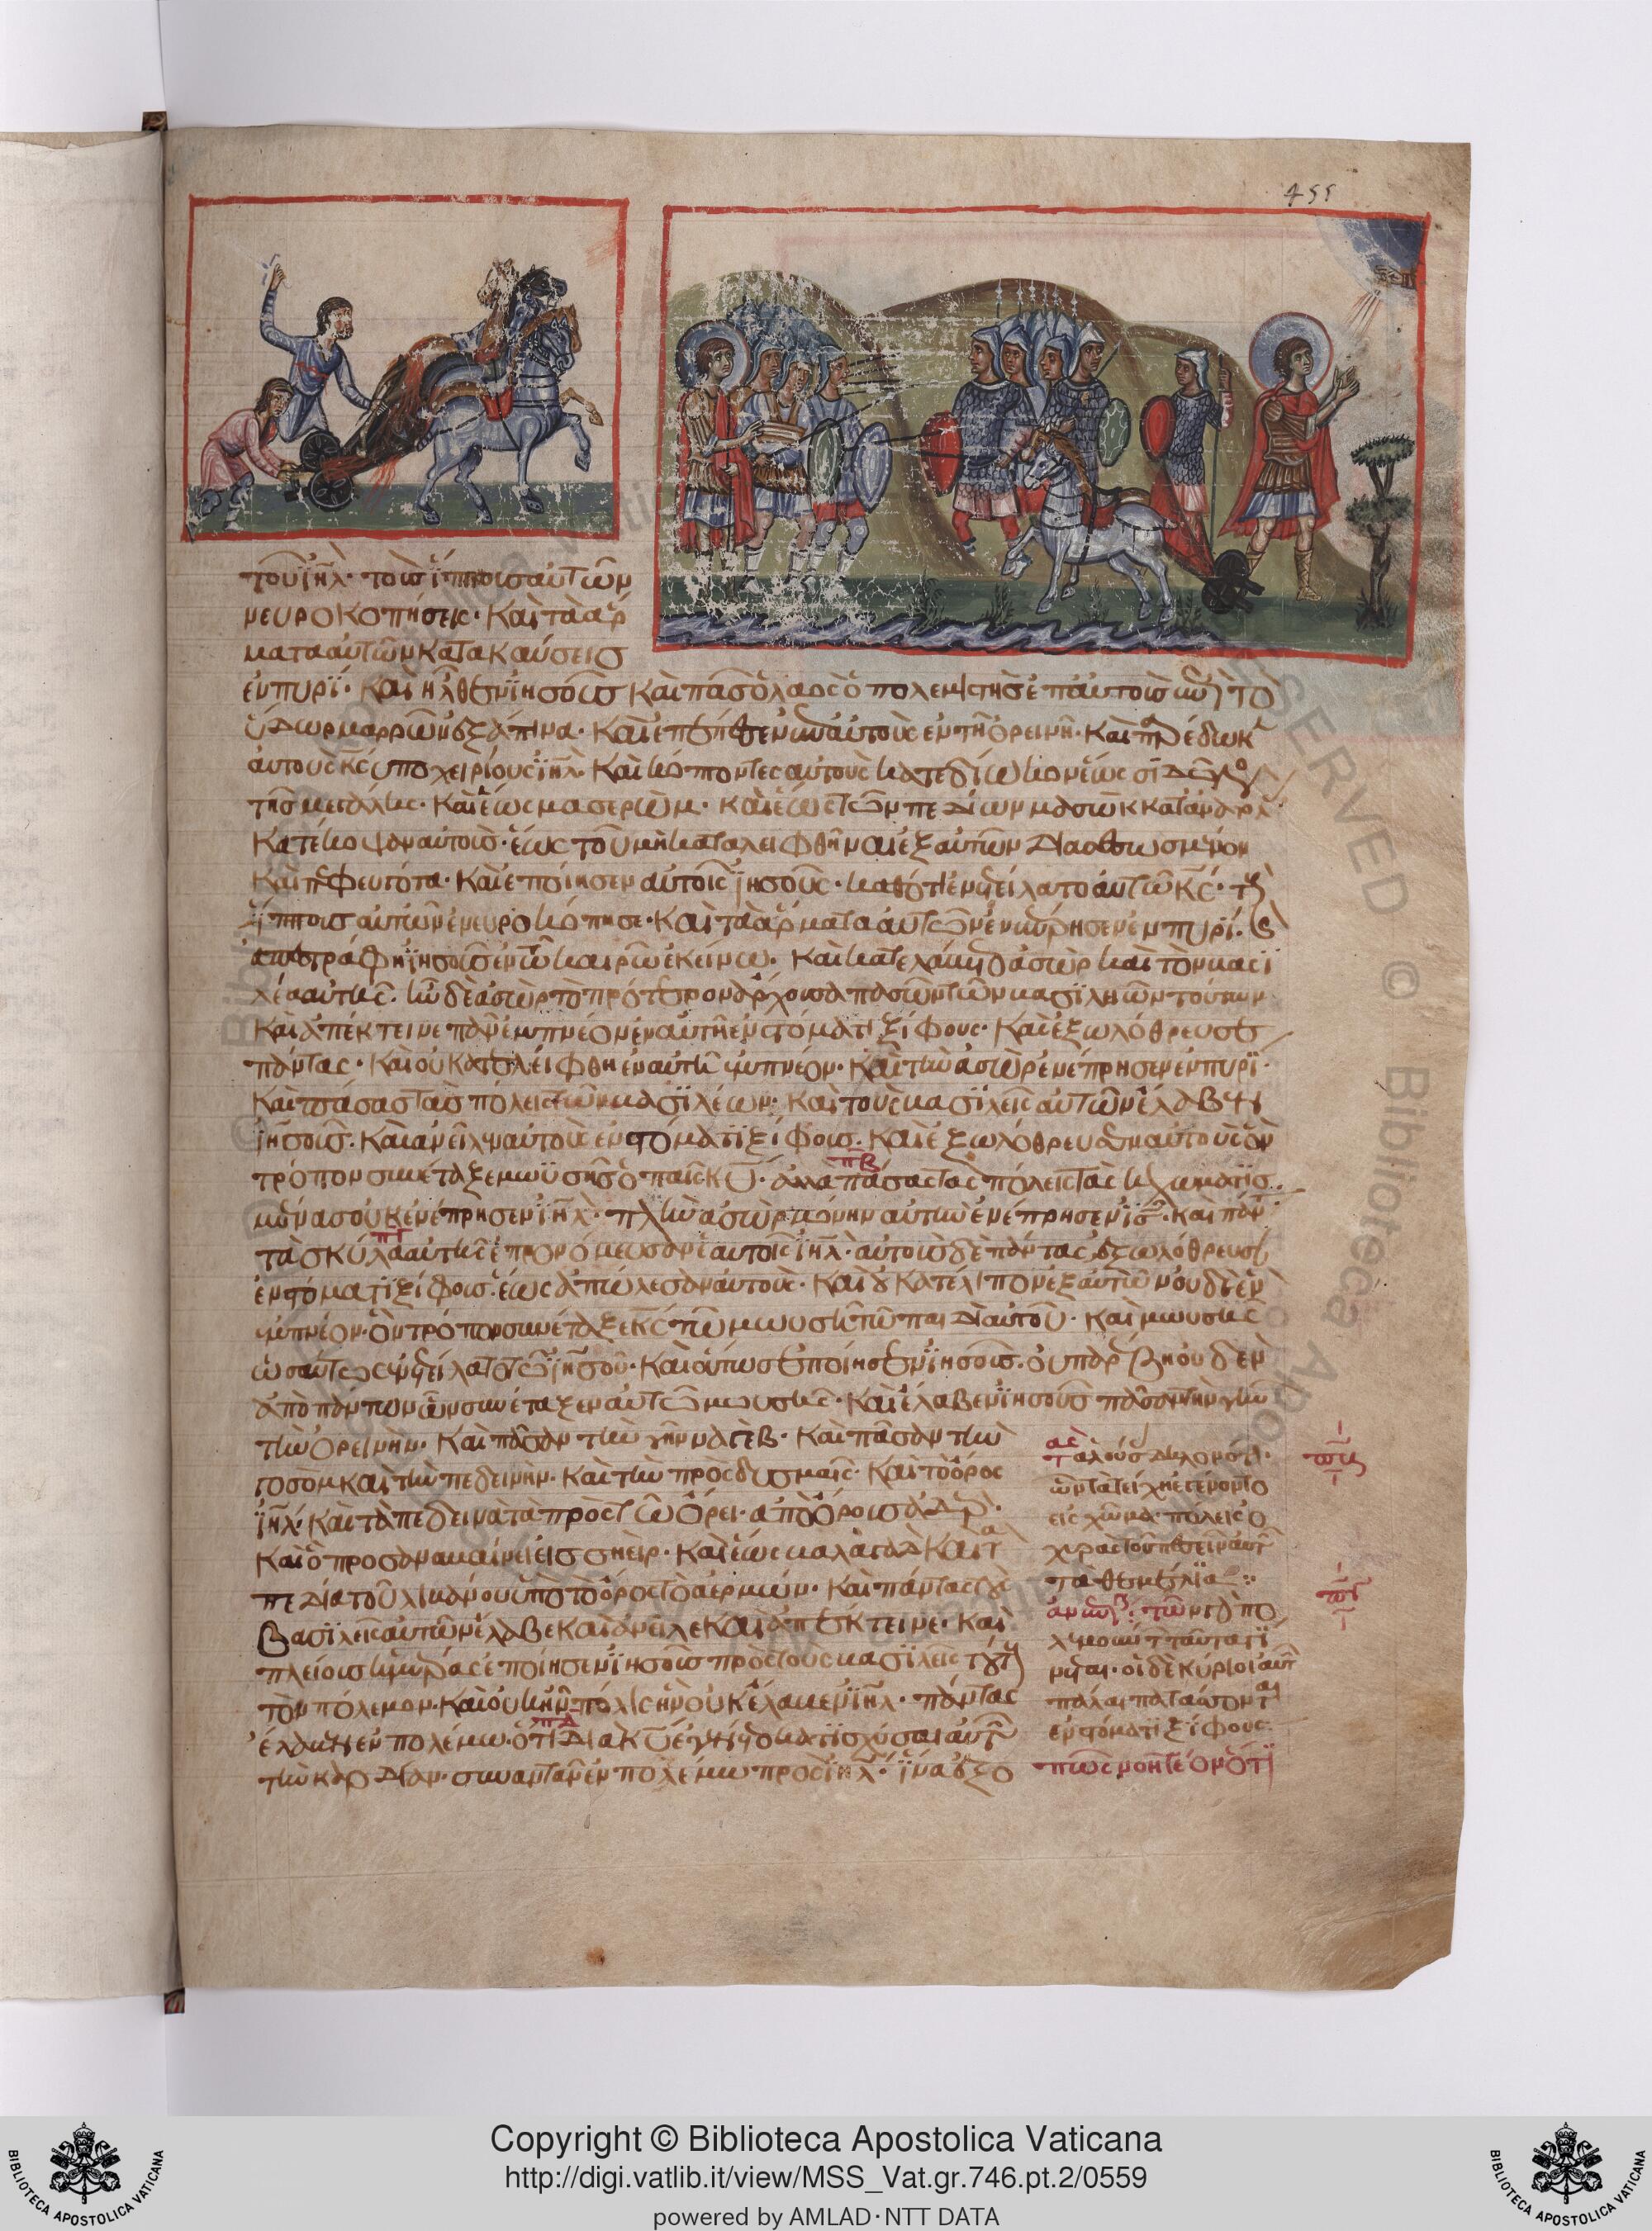 455
τοῦ ἰηλ· τοὺς ἵππους αὐτῶν
νευροκοπήσεις· καὶ τὰ ἅρ
ματα αὐτῶν κατακαύσεις
ἐν πυρί· καὶ ἦλθεν ἰησοῦς καὶ πᾶς ὁ λαὸς ὁ πολεμιστὴς ἐπ αὐτοὺς ἐπὶ τὸ
ὕδωρ μαρρὼν ἐξάπινα· καὶ ἐπέπεσεν ἐπ αὐτοὺς ἐν τῇ ὀρεινῇ· καὶ παρέδωκ
αὐτοὺς κς ὑποχειρίους ἰηλ· καὶ κόπτοντες αὐτοὺς κατεδίωκον ἕως σιδῶνος
τῆς μεγάλης· καὶ ἕως μασερὼμ· καὶ ἕως τῶν πεδίων μασὼκ κατ ἀνατολ
κατέκοψαν αὐτοὺς· ἕως τοῦ μὴ καταλειφθῆναι ἐξ αὐτῶν διασεσωσμένον
καὶ πεφευγότα· καὶ ἐποίησεν αὐτοῖς ἰησοῦς· καθότι ἐνετείλατο αὐτῷ κς· τοὺς
ἵππους αὐτῶν ἐνευροκόπησε· καὶ τὰ ἅρματα αὐτῶν ἐνέπρησεν ἐν πυρί· καὶ
ἀπεστράφη ἰησοῦς ἐν τῷ καιρῷ ἐκείνῳ· καὶ κατελάβετο ἀσὼρ καὶ τὸν βασι
λέα αὐτῆς· ἦν δὲ ἀσὼρ τὸ πρότερον ἄρχουσα πασῶν τῶν βασιλειῶν τούτων
καὶ ἀπέκτεινε πᾶν ἐμπνέον ἐν αὐτῇ ἐν στόματι ξίφους· καὶ ἐξωλόθρευσε
πάντας· καὶ οὐ κατελείφθη ἐν αὐτῇ ἐμπνέον· καὶ τὴν ἀσὼρ ἐνέπρησεν ἐν πυρί·
καὶ πάσας τὰς πόλεις τῶν βασιλέων· καὶ τοὺς βασιλεῖς αὐτῶν ἔλαβεν
ἰησοῦς· καὶ ἀνεῖλεν αὐτοὺς ἐν στόματι ξίφους· καὶ ἐξωλόθρευσαν αὐτοὺς ὃν
τρόπον συνέταξε μωϋσῆς ὁ παῖς κυ· ἀλλὰ πάσας τὰς πόλεις τὰς κεχωματισ
πβ
μένας οὐκ ἐνέπρησεν ἰηλ· πλὴν ἀσὼρ μόνην αὐτὴν ἐνέπρησεν ἰς· καὶ πάν
πγ
τα σκῦλα αὐτῆς ἐπρονόμευσαν ἑαυτοῖς ἰηλ· αὐτοὺς δὲ πάντας ἐξωλόθρευσεν
ἐν στόματι ξίφους· ἕως ἀπώλεσαν αὐτοὺς· καὶ οὐ κατέλιπον ἐξ αὐτῶν οὐδὲ ἓν
ἐμπνέον· ὃν τρόπον συνέταξε κς τῷ μωυσῇ τῷ παιδὶ αὐτοῦ· καὶ μωυσῆς
ὡσαύτως ἐνετείλατο τῷ ἰησοῦ· καὶ οὕτως ἐποίησεν ἰησοῦς· οὐ παρέβη οὐδὲν
ἀπὸ πάντων ὧν συνέταξεν αὐτῷ μωυσῆς· καὶ ἔλαβεν ἰησοῦς πᾶσαν τὴν γῆν
τὴν ὀρεινὴν· καὶ πᾶσαν τὴν γῆν ναγὲβ· καὶ πᾶσαν τὴν
γοσὸμ καὶ τὴν πεδεινὴν· καὶ τὴν πρὸς δυσμαῖς· καὶ τὸ ὄρος
ἰηλ· καὶ τὰ πεδεινὰ τὰ πρὸς τῷ ὄρει· ἀπὸ ὄρους
καὶ ὃ προσαναβαίνει εἰς σηεὶρ· καὶ ἕως βαλαγὰδ καὶ τὰ
πεδία τοῦ λιβάνου ὑπὸ τὸ ὄρος τὸ ἀερμὼν· καὶ πάντας τοὺς
βασιλεῖς αὐτῶν ἔλαβε καὶ ἀνεῖλε καὶ ἀπέκτεινε· καὶ
πλείους ἡμέρας ἐποίησεν ἰησοῦς πρὸς τοὺς βασιλεῖς τούτους
τὸν πόλεμον· καὶ οὐκ ἦν πόλις ἣν οὐκ ἔλαβεν ἰηλ· πάντας
ἔλαβεν ἐν πολέμῳ· ὅτι διὰ κυ ἐγένετο κατισχύσαι αὐτῶν
πδ
τὴν καρδίαν· συναντᾶν ἐν πολέμῳ πρὸς ἰηλ· ἵνα ἐξο
ὧν τὰ τείχη ἐγένοντο
εἰς χῶμα· πόλεις ὀ
χυρὰς τοῦ πεσεῖν αὐτ
τὰ θεμέλια
πβ
πγ
οἱ δὲ κύριοι αὐτ
πάλαι πατάσσοντ
ἐν στόματι ξίφους·
πῶς νοητέον ὅτι
Copyright © Biblioteca Apostolica Vaticana
http://digi.vatlib.it/view/MSS_Vat.gr.746.pt.2/0559
powered by AMLAD·NTT DATA
BIBLIOTECA APOSTOLICA VATICANA
BIBLIOTECA APOSTOLICA VATICANA